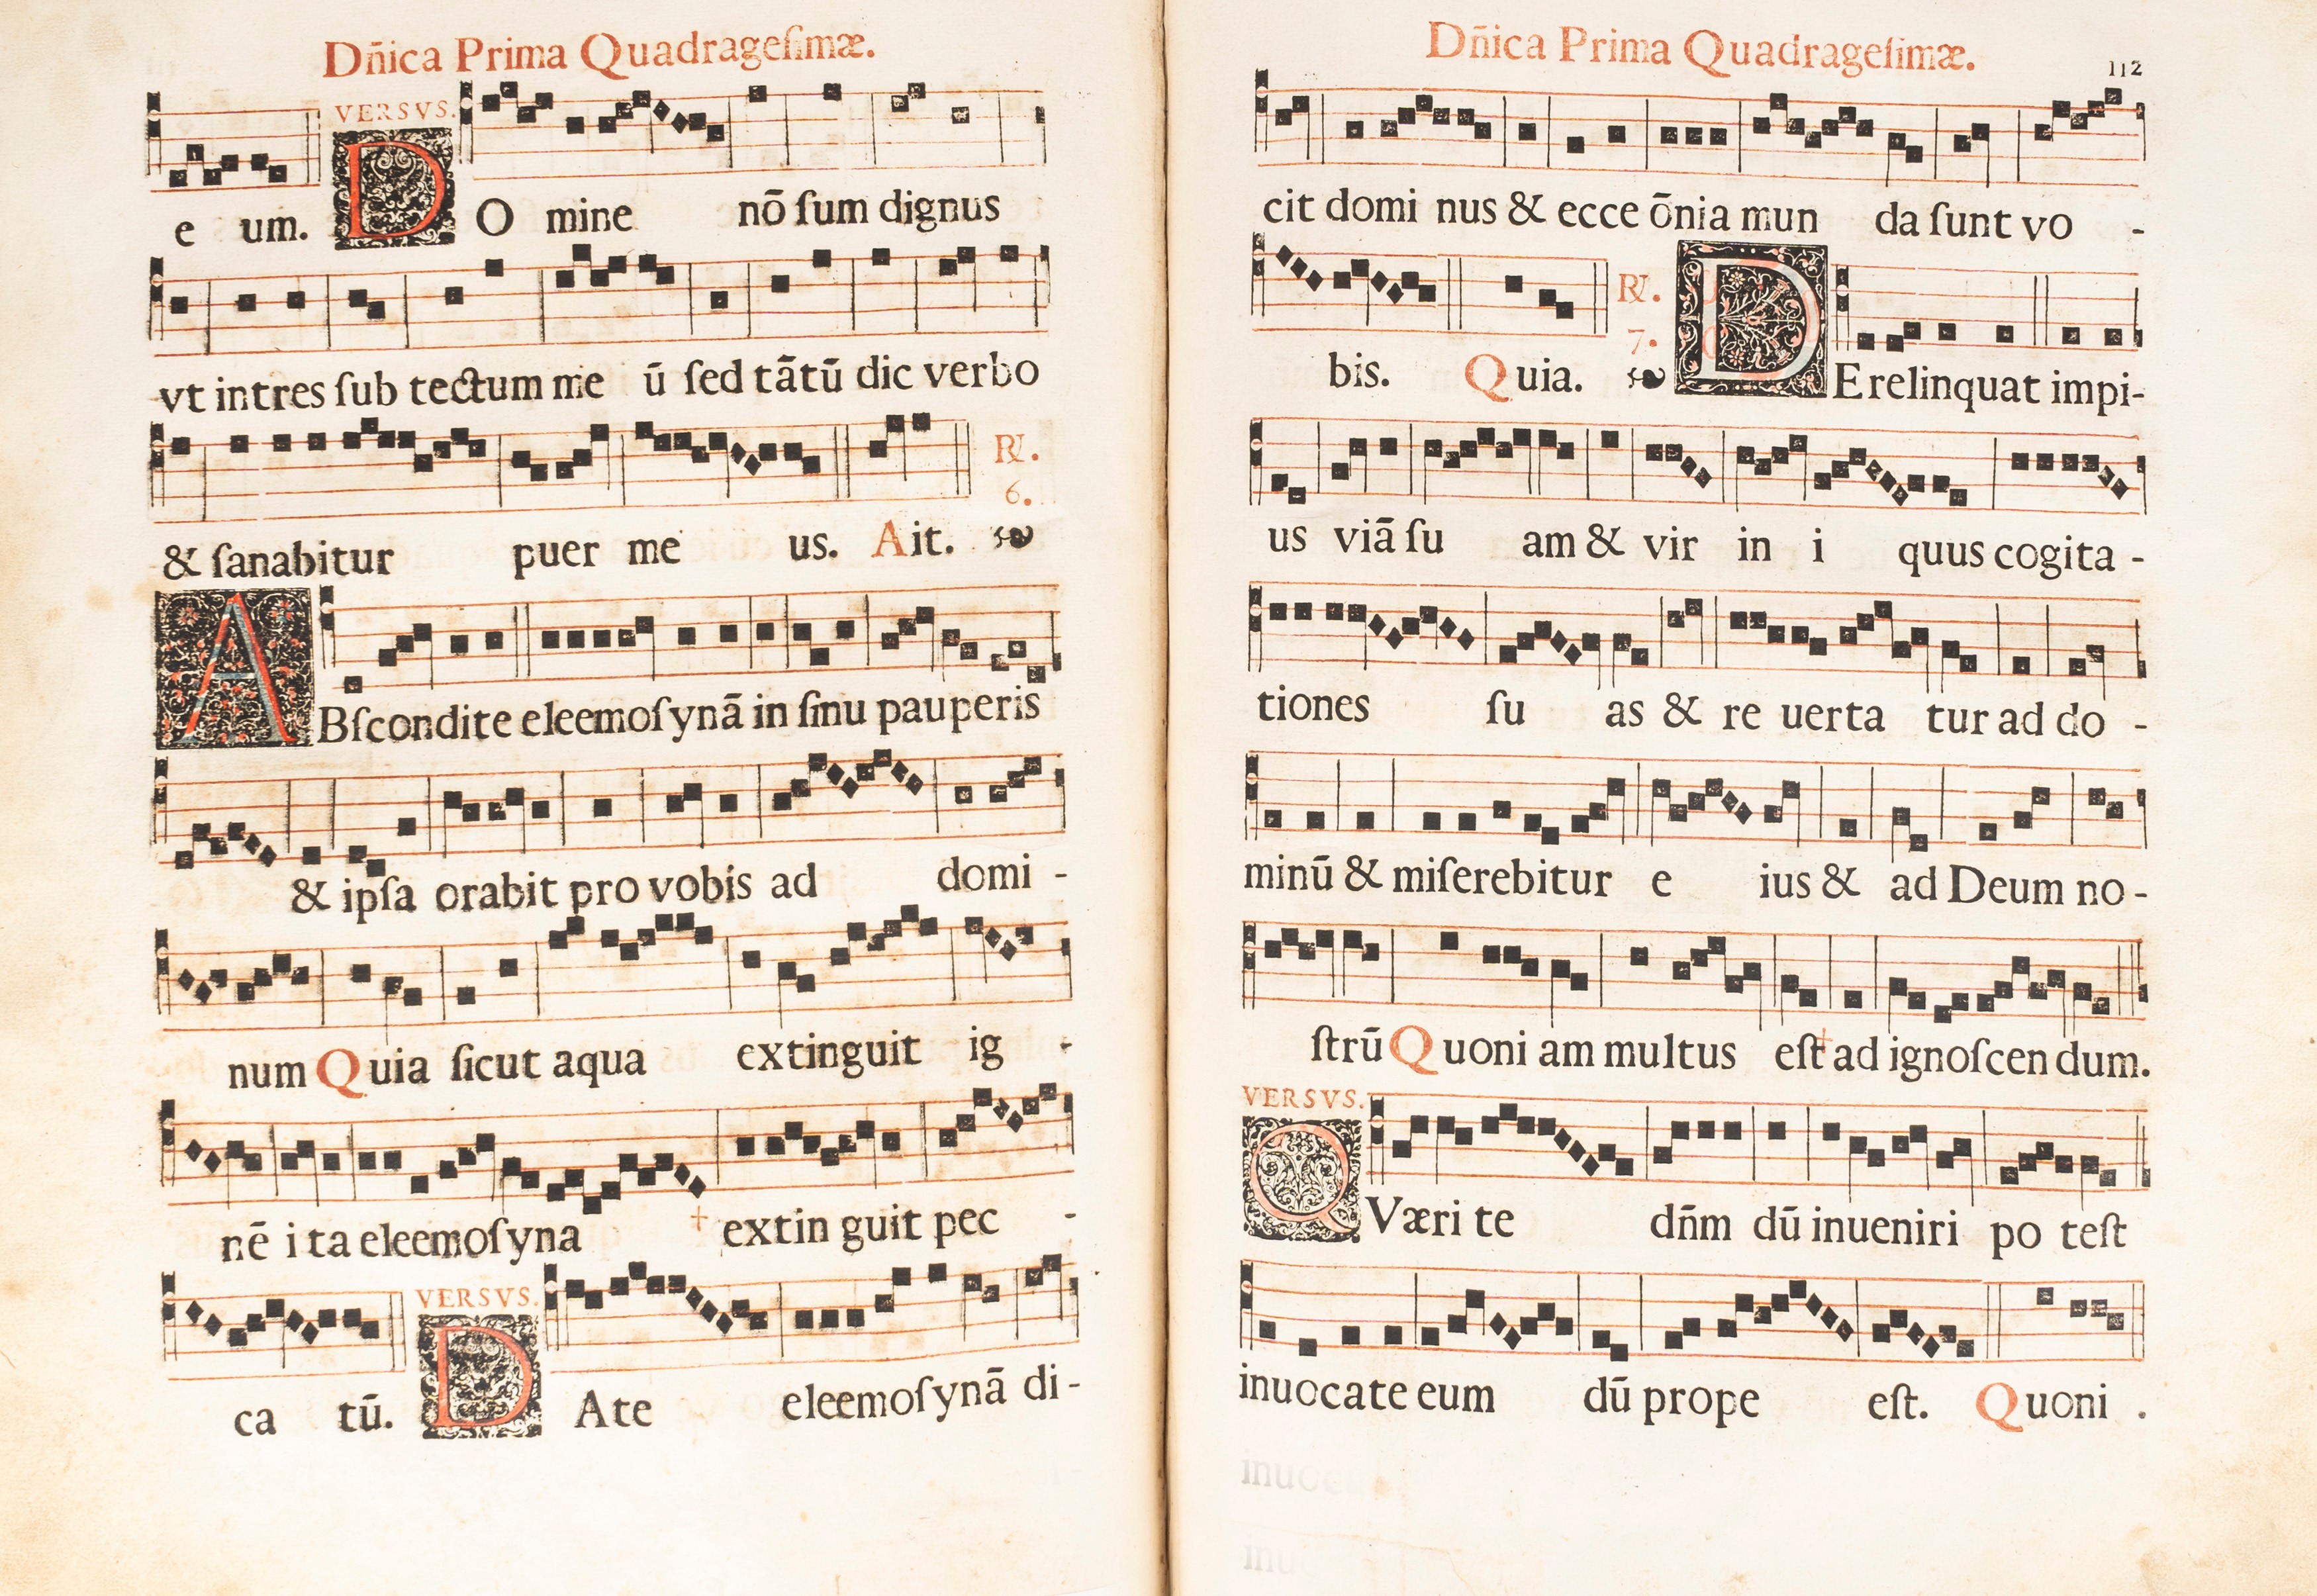 Dn̄ica Prima Quadrageſimæ.
VERSVS.
e um. DO mine nō ſum dignus
vt intres ſub tectum me ū ſed tātū dic verbo
& ſanabitur puer me us. Ait. ☙
R℣.
6.
ABſcondite eleemoſynā in ſinu pauperis
& ipſa orabit pro vobis ad domi -
num Quia ſicut aqua extinguit ig -
nē i ta eleemoſyna + extin guit pec -
VERSVS.
ca tū. DAte eleemoſynā di-
Dn̄ica Prima Quadrageſimæ.
112
cit domi nus & ecce ōnia mun da ſunt vo -
R℣.
7.
bis. Quia. ☙ DErelinquat impi-
us viā ſu am & vir in i quus cogita -
tiones ſu as & re uerta tur ad do -
minū & miſerebitur e ius & ad Deum no-
ſtrū Quoni am multus eſt + ad ignoſcen dum.
VERSVS.
QVæri te dn̄m dū inueniri po teſt
inuocate eum dū prope eſt. Quoni .